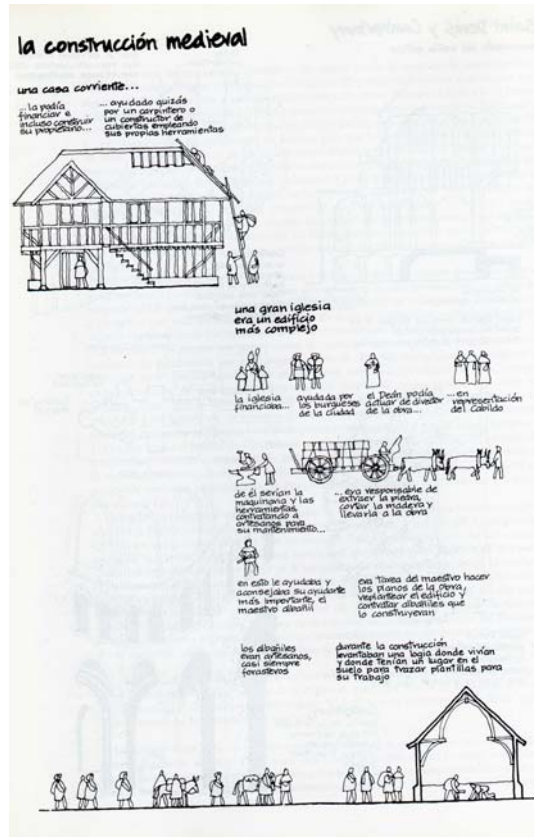 la construcción medieval
una casa corriente...
...la podía
financiar e
incluso construir
su propietario...
... ayudado quizás
por un carpintero o
un constructor de
cubiertas empleando
sus propias herramientas
una gran iglesia
era un edificio
más complejo
la iglesia
financiaba...
ayudada por
los burgueses
de la ciudad
el Deán podía
actuar de director
de la obra...
...en
representación
del Cabildo
de él serían la
maquinaria y las
herramientas,
contratando a
artesanos para
su mantenimiento...
...era responsable de
extraer la piedra,
cortar la madera y
llevarla a la obra
en esto le ayudaba y
aconsejaba su ayudante
más importante, el
maestro albañil
era tarea del maestro hacer
los planos de la obra,
replantear el edificio y
contratar albañiles que
lo construyeran
los albañiles
eran artesanos,
casi siempre
forasteros
durante la construcción
levantaban una logia donde vivían
y donde tenían un lugar en el
suelo para trazar plantillas para
su trabajo